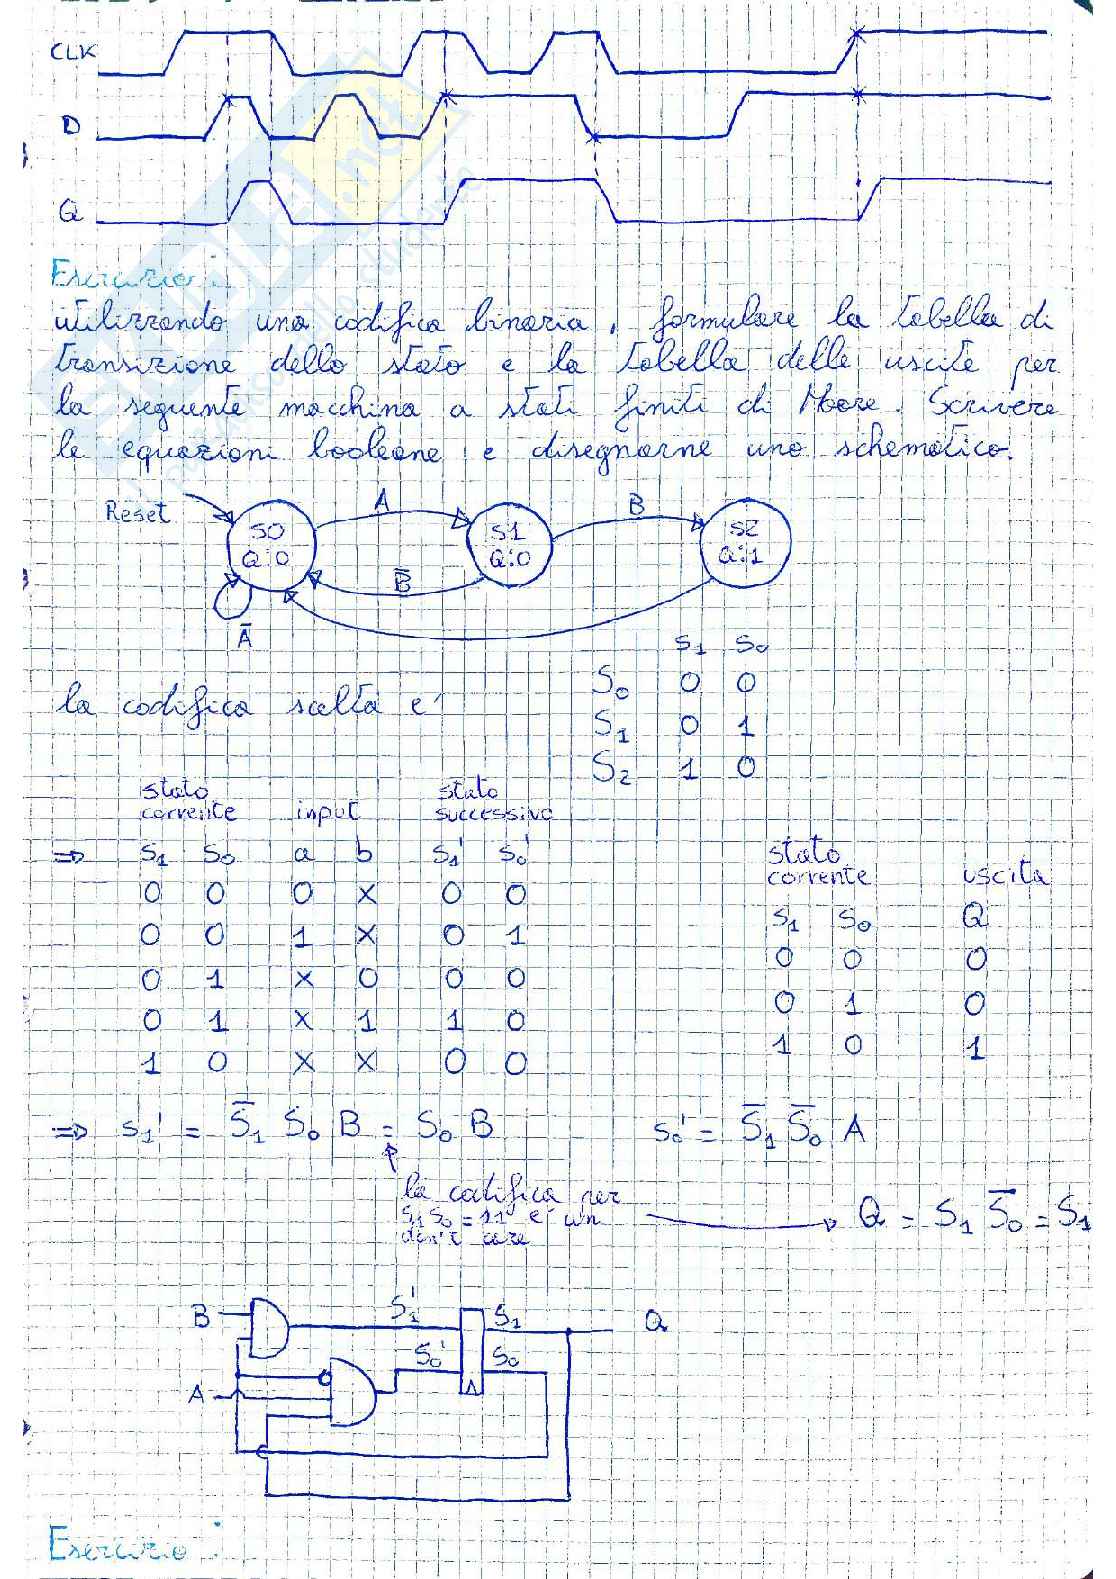 CLK
D
Q
Esercizio :
utilizzando una codifica binaria, formulare la tabella di
transizione dello stato e la tabella delle uscite per
la seguente macchina a stati finiti di Moore. Scrivere
le equazioni booleane e disegnarne uno schematico.
Reset
A
B
S0
Q:0
S1
Q:0
S2
Q:1
B̅
A̅
S₁ S₀
la codifica scelta è
S₀ 0 0
S₁ 0 1
S₂ 1 0
stato corrente input stato successivo
⇒ S₁ S₀ a b S₁' S₀'
0 0 0 X 0 0
0 0 1 X 0 1
0 1 X 0 0 0
0 1 X 1 1 0
1 0 X X 0 0
stato corrente uscita
S₁ S₀ Q
0 0 0
0 1 0
1 0 1
⇒ S₁' = S̅₁ S₀ B = S₀ B
S₀' = S̅₁ S̅₀ A
la codifica per
S₁ S₀ = 11 è un
don't care
Q = S₁ S̅₀ = S₁
B
S₁'
S₁
Q
S₀'
S₀
A
Esercizio :